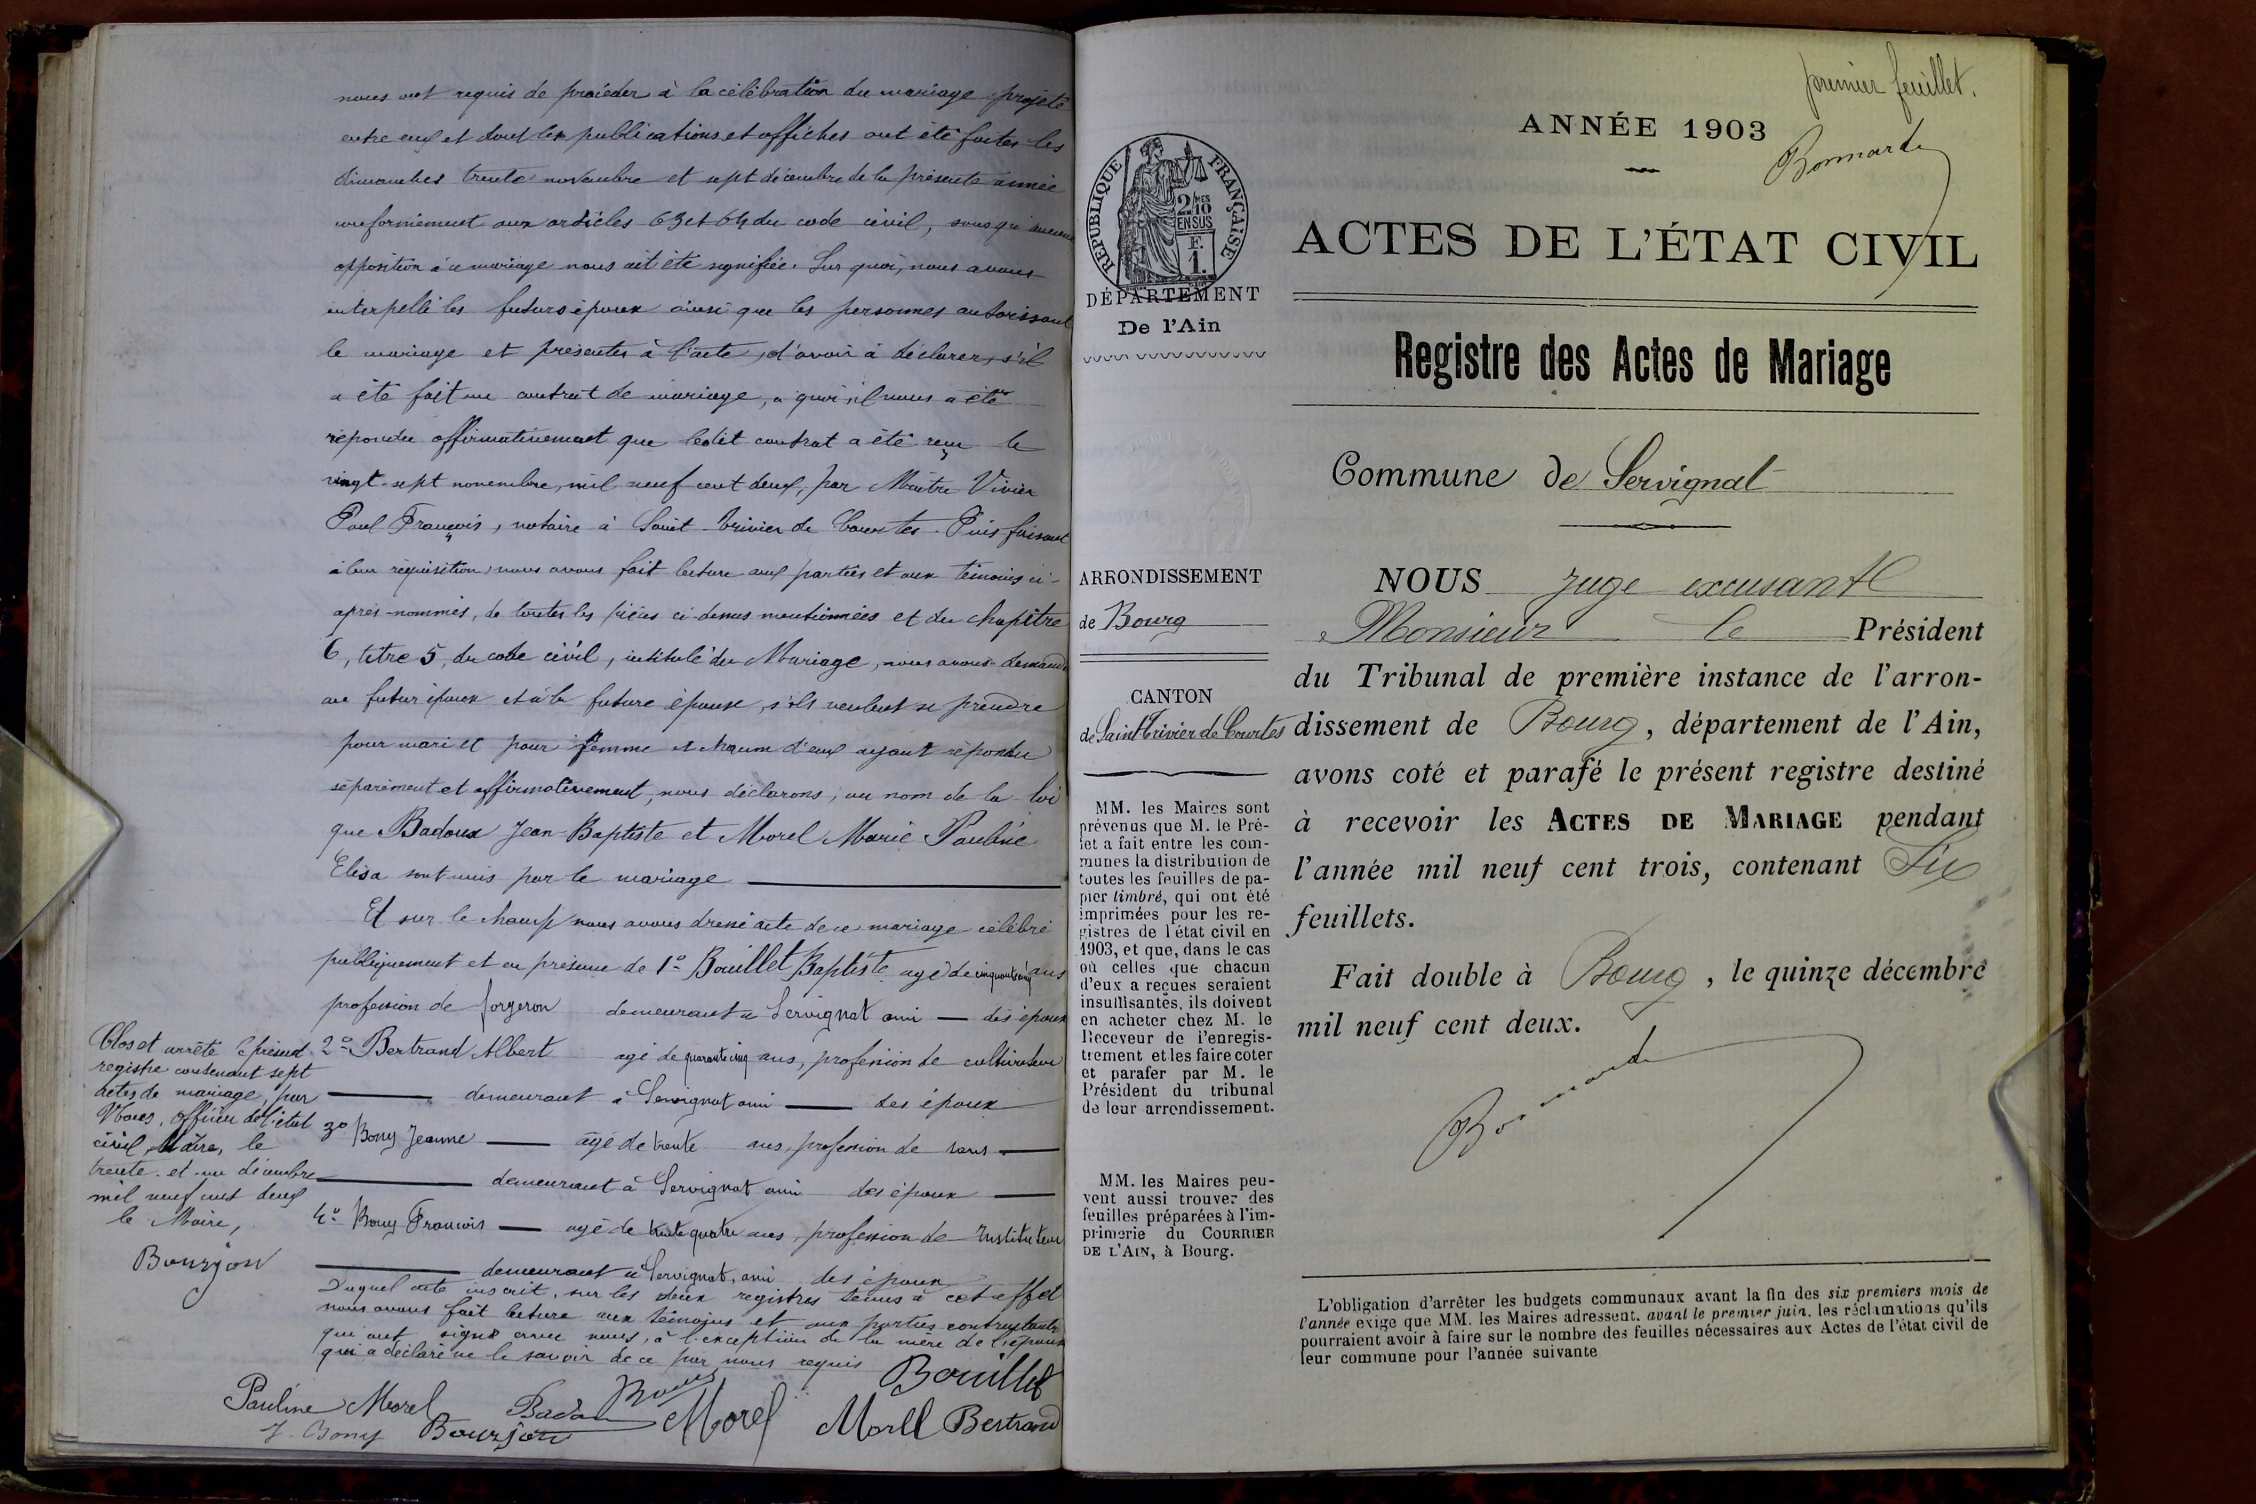 nous ont requis de procéder à la célébration du mariage projeté
entre eux et dont les publications et affiches ont été faites les
dimanches trente novembre et sept décembre de la présente année
conformément aux articles 63 et 64 du code civil, sans qu'aucune
opposition à ce mariage nous ait été signifiée. Sur quoi, nous avons
interpellé les futurs époux ainsi que les personnes autorisant
le mariage et présentes à l'acte, d'avoir à déclarer, s'il
a été fait un contrat de mariage, à quoi, il nous a été
répondu affirmativement que ledit contrat a été reçu le
vingt-sept novembre, mil neuf cent deux, par Maître Vivier
Paul François, notaire à Saint-Trivier de Courtes. Puis faisant
à leur réquisition, nous avons fait lecture aux parties et aux témoins ci-
après-nommés, de toutes les pièces ci-dessus mentionnées et du chapitre
6, titre 5, du code civil, intitulé du Mariage, nous avons demandé
au futur époux et à la future épouse, s'ils veulent se prendre
pour mari et pour femme et chacun d'eux ayant répondu
séparément et affirmativement, nous déclarons, au nom de la loi
que Badoux Jean-Baptiste et Morel Marie Pauline
Elisa sont unis par le mariage
Et sur le champ nous avons dressé acte de ce mariage célébré
publiquement et en présence de 1º Bouillet Baptiste agé de ans
profession de forgeron demeurant à Servignat ami des époux
2º Bertrand Albert agé de quarante cinq ans, profession de cultivateur
demeurant à Servignat ami des époux
3º Bony Jeanne âgé de trente ans, profession de sans
demeurant à Servignat ami des époux
4º Bony François agé de trente quatre ans, profession de Instituteur
demeurant à Servignat, ami des époux
Duquel acte inscrit, sur les deux registres tenus à cet effet
nous avons fait lecture aux témoins et aux parties contractantes
qui ont signé avec nous, à l'exception de la mère de l'époux
qui a déclaré ne le savoir de ce par nous requis
Clos et arrêté le présent
registre contenant sept
actes de mariage, par
Nous, officier de l'état
civil, Maire, le
trente et un décembre
mil neuf cent deux
le Maire,
Bourjon
Bouillet
Pauline Morel Badoux Morel Morel Bertrand
J. Bony Bourjon
premier feuillet.
Bonnarde
ANNÉE 1903
ACTES DE L'ÉTAT CIVIL
Registre des Actes de Mariage
Commune de Servignat
NOUS juge excusant
Monsieur le Président
du Tribunal de première instance de l'arron-
dissement de Bourg, département de l'Ain,
avons coté et parafé le présent registre destiné
à recevoir les ACTES DE MARIAGE pendant
l'année mil neuf cent trois, contenant Six
feuillets.
Fait double à Bourg, le quinze décembre
mil neuf cent deux.
Bonnarde
L'obligation d'arrêter les budgets communaux avant la fin des six premiers mois de
l'année exige que MM. les Maires adressent, avant le premier juin, les réclamations qu'ils
pourraient avoir à faire sur le nombre des feuilles nécessaires aux Actes de l'état civil de
leur commune pour l'année suivante
RÉPUBLIQUE FRANÇAISE
2/10 MES
EN SUS
F.
1.
DÉPARTEMENT
De l'Ain
ARRONDISSEMENT
de Bourg
CANTON
de Saint-Trivier de Courtes
MM. les Maires sont
prévenus que M. le Pré-
fet a fait entre les com-
munes la distribution de
toutes les feuilles de pa-
pier timbré, qui ont été
imprimées pour les re-
gistres de l'état civil en
1903, et que, dans le cas
où celles que chacun
d'eux a reçues seraient
insuffisantes, ils doivent
en acheter chez M. le
Receveur de l'enregis-
trement et les faire coter
et parafer par M. le
Président du tribunal
de leur arrondissement.
MM. les Maires peu-
vent aussi trouver des
feuilles préparées à l'im-
primerie du COURRIER
DE L'AIN, à Bourg.